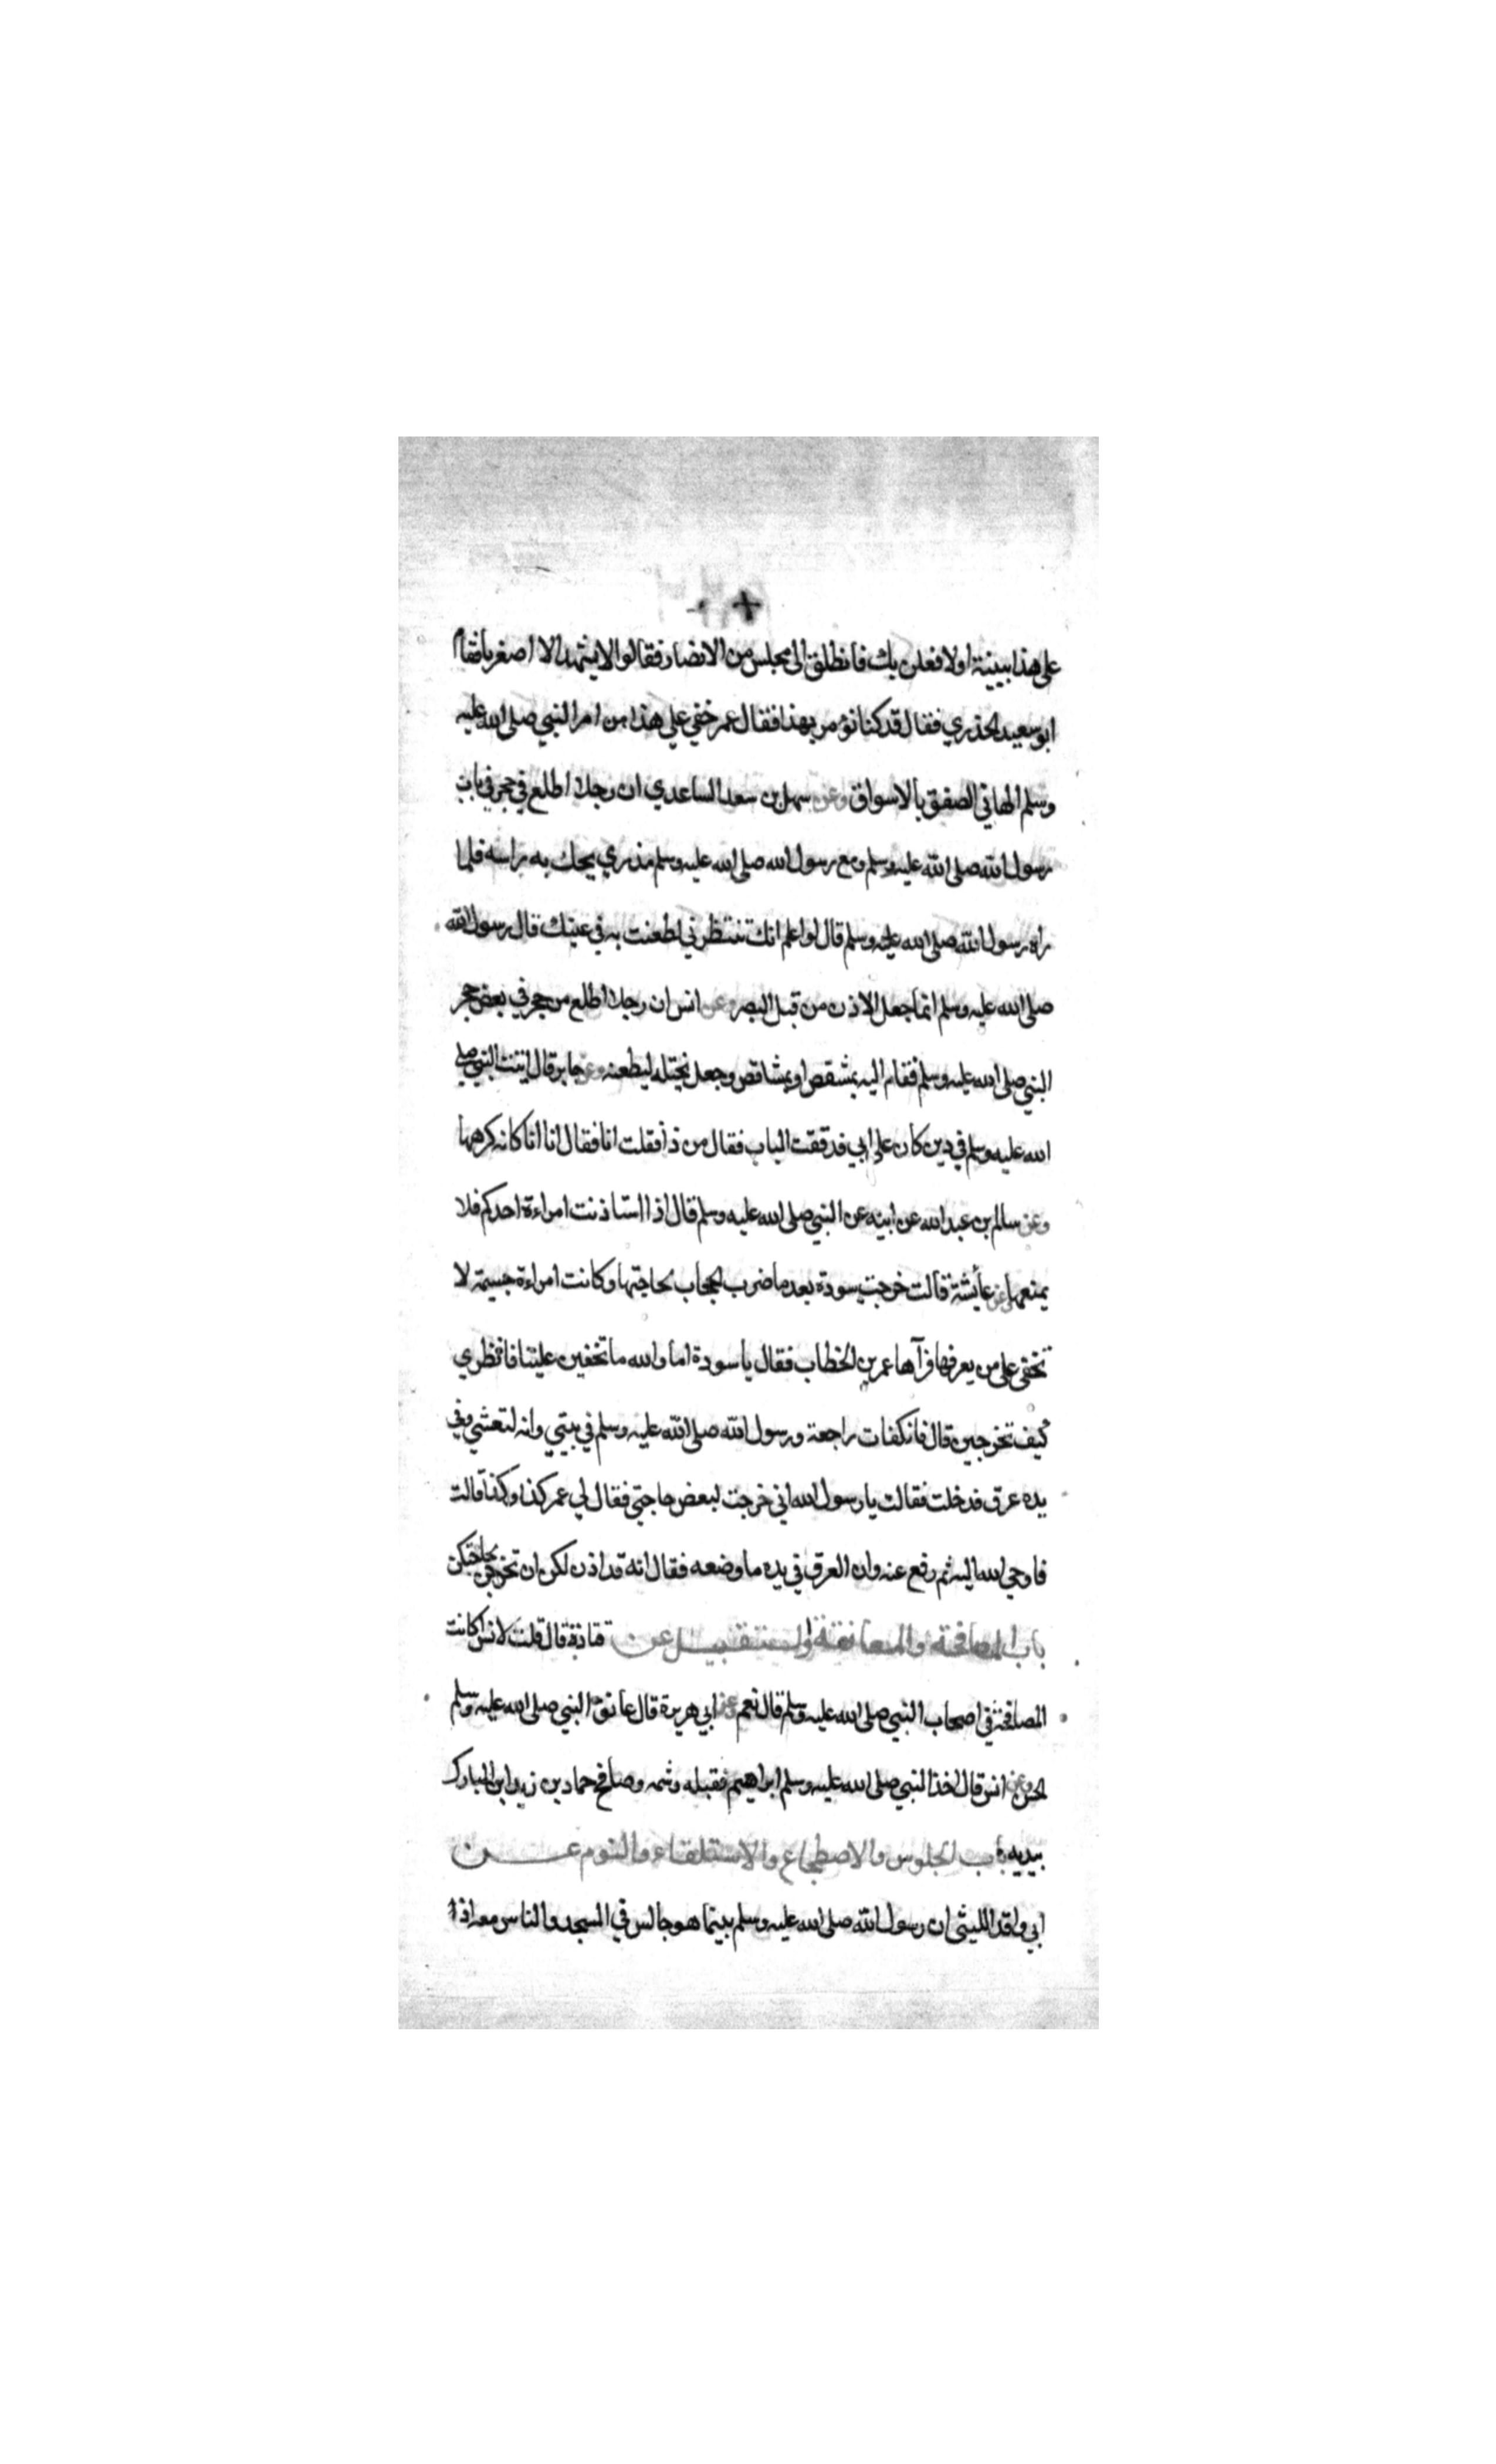 على هذا ببينة اولا فعلن بك فانطلق الى مجلس من الانصار فقالوا لا يشهد الا اصغرنا فقام
ابو سعيد الخذري فقال قد كنا نؤمر بهذا فقال عمر خفي علي هذا من امر النبي صلى الله عليه
وسلم الهاني الصفق بالاسواق وعن سهل بن سعد الساعدي ان رجلا اطلع في حجر في باب
رسول الله صلى الله عليه وسلم ومع رسول الله صلى الله عليه وسلم مذري يحك به راسه فلما
راه رسول الله صلى الله عليه وسلم قال لو اعلم انك تنتظرني لطعنت به في عينك قال رسول الله
صلى الله عليه وسلم انما جعل الاذن من قبل البصر وعن انس ان رجلا اطلع من حجر في بعض حجر
النبي صلى الله عليه وسلم فقام اليه بمشقص او بمشاقص وجعل يختله ليطعنه وعن جابر قال اتيت النبي صلى
الله عليه وسلم في دين كان على ابي فدققت الباب فقال من ذا فقلت انا فقال انا انا كانه كرهها
وعن سالم بن عبد الله عن ابيه عن النبي صلى الله عليه وسلم قال اذا استاذنت امراءة احدكم فلا
يمنعها وعن عائشة قالت خرجت سودة بعد ما ضرب الحجاب لحاجتها وكانت امراءة جسيمة لا
تخفى على من يعرفها فرآها عمر بن الخطاب فقال يا سودة اما والله ما تخفين علينا فانظري
كيف تخرجين قال فانكفات راجعة ورسول الله صلى الله عليه وسلم في بيتي وانه لتعشي وفي
يده عرق فدخلت فقالت يا رسول الله اني خرجت لبعض حاجتي فقال لي عمر كذا وكذا قالت
فاوحي الله اليه ثم رفع عنه وان العرق في يده ما وضعه فقال انه قد اذن لكن ان تخرجن لحاجتكن
باب المصافحة والمعانقة والتقبيل عن قتادة قال قلت لانس اكانت
المصافحة في اصحاب النبي صلى الله عليه وسلم قال نعم وعن ابي هريرة قال عانق النبي صلى الله عليه وسلم
الحسن وعن انس قال اخذ النبي صلى الله عليه وسلم ابراهيم فقبله وشمه وصافح حماد بن زيد ابن المبارك
بيديه باب الجلوس والاضطجاع والاستلقاء والنوم عن
ابي واقد الليثي ان رسول الله صلى الله عليه وسلم بينما هو جالس في المسجد والناس معه اذا